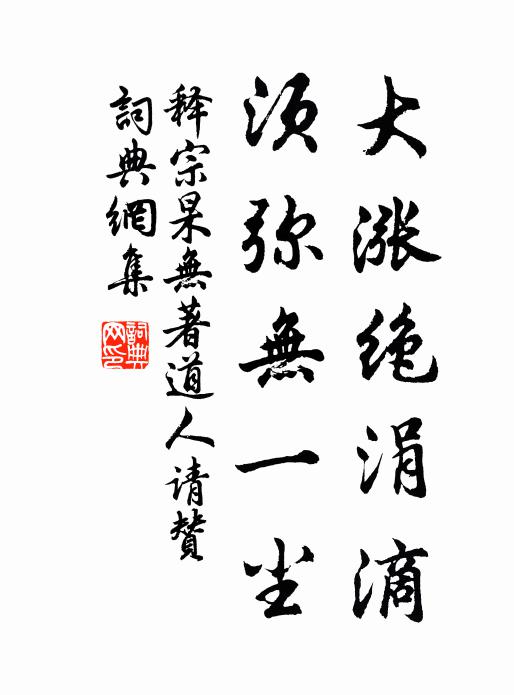 大涨绝涓滴
须弥無一尘
释宗杲無著道人请贊
詞典網集
詞典網印